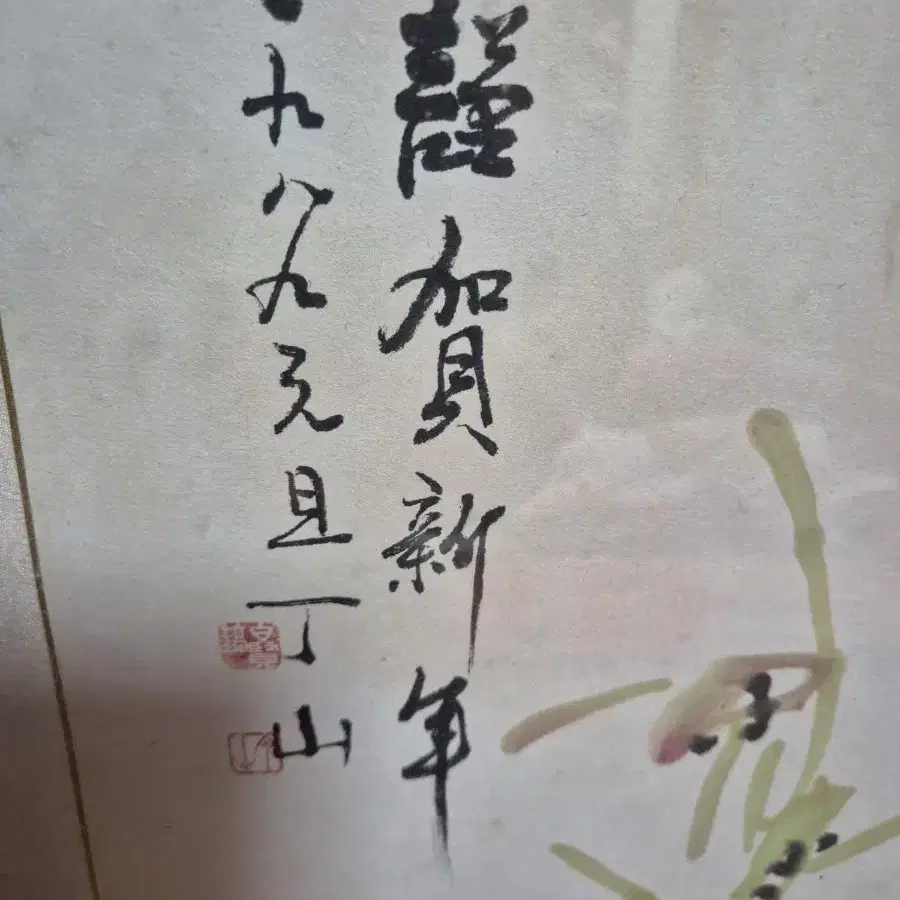 謹賀新年
九八九元旦丁山